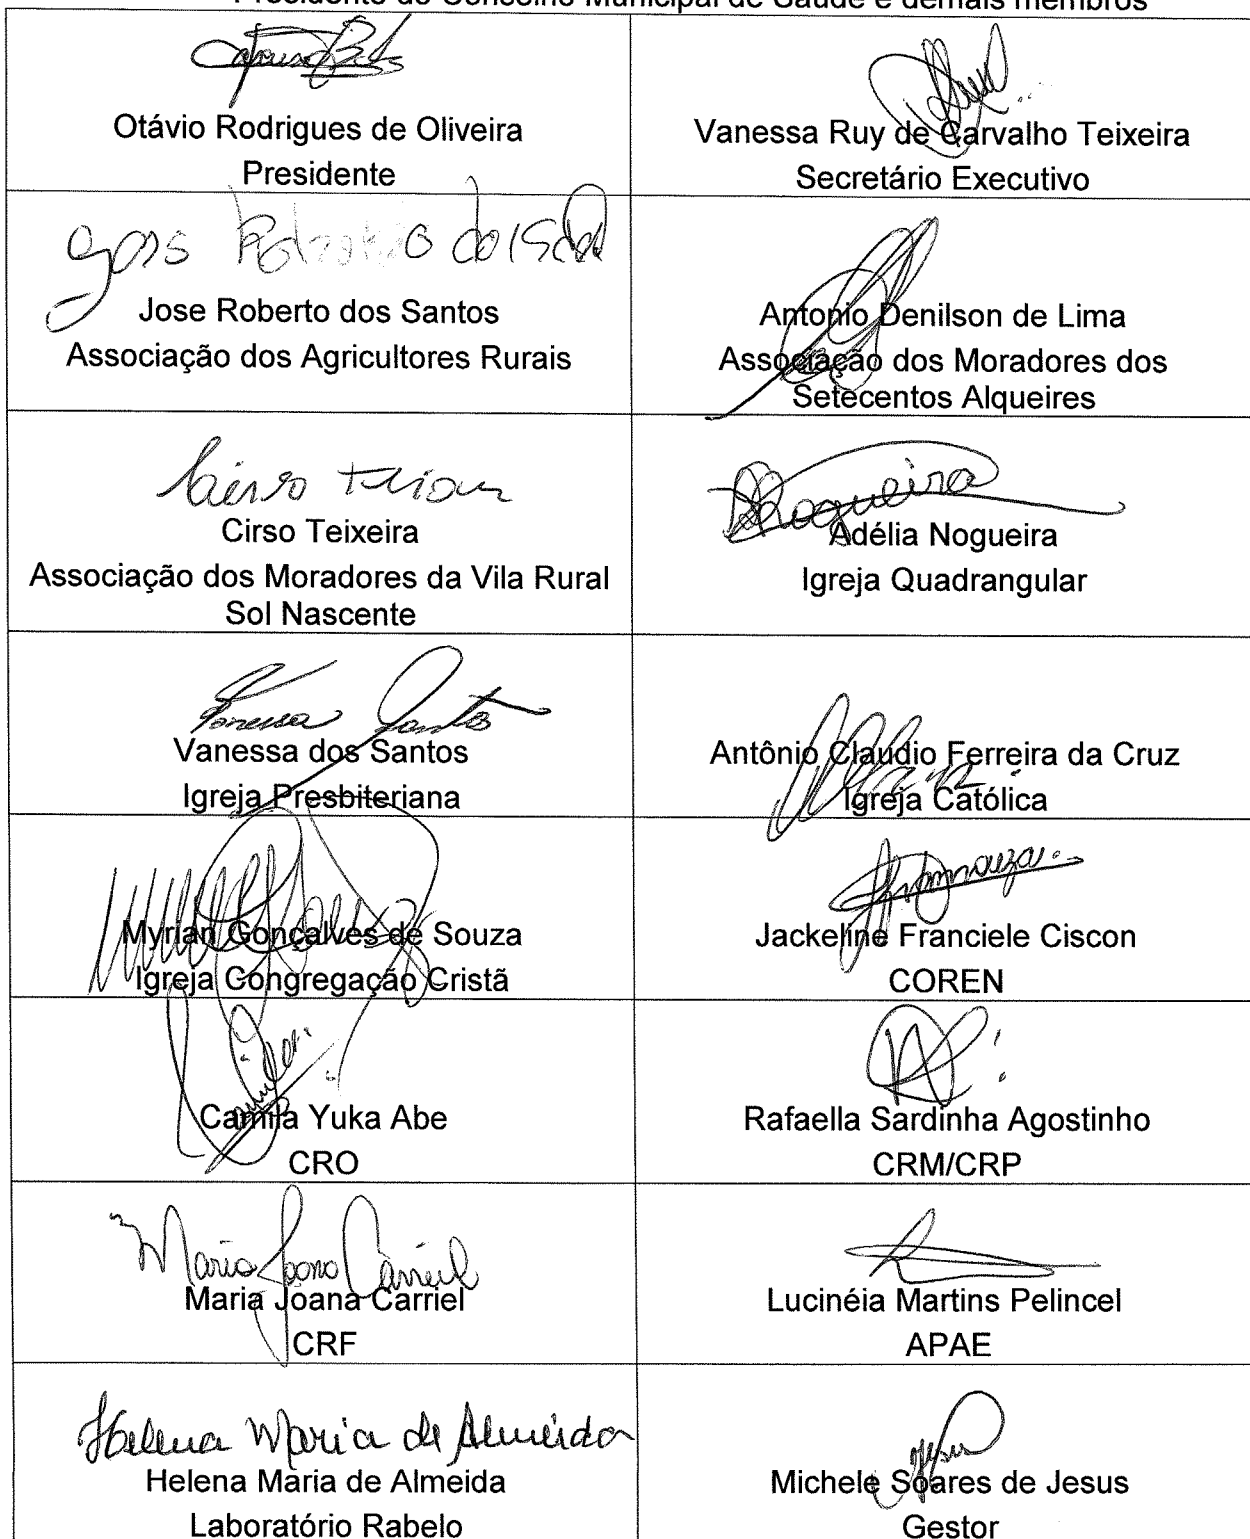 Presidente do Conselho Municipal de Saúde e demais membros
Otávio Rodrigues de Oliveira
Presidente
Vanessa Ruy de Carvalho Teixeira
Secretário Executivo
Jose Roberto dos Santos
Associação dos Agricultores Rurais
Antonio Denilson de Lima
Associação dos Moradores dos
Setecentos Alqueires
Cirso Teixeira
Associação dos Moradores da Vila Rural
Sol Nascente
Nogueira
Adélia Nogueira
Igreja Quadrangular
Vanessa Santos
Vanessa dos Santos
Igreja Presbiteriana
Antônio Claudio Ferreira da Cruz
Igreja Católica
Myrian Gonçalves de Souza
Igreja Congregação Cristã
Jackeline Franciele Ciscon
COREN
Camila
Camila Yuka Abe
CRO
Rafaella Sardinha Agostinho
CRM/CRP
Maria Joana Carriel
Maria Joana Carriel
CRF
Lucinéia Martins Pelincel
APAE
Helena Maria de Almeida
Helena Maria de Almeida
Laboratório Rabelo
Michele Soares de Jesus
Gestor